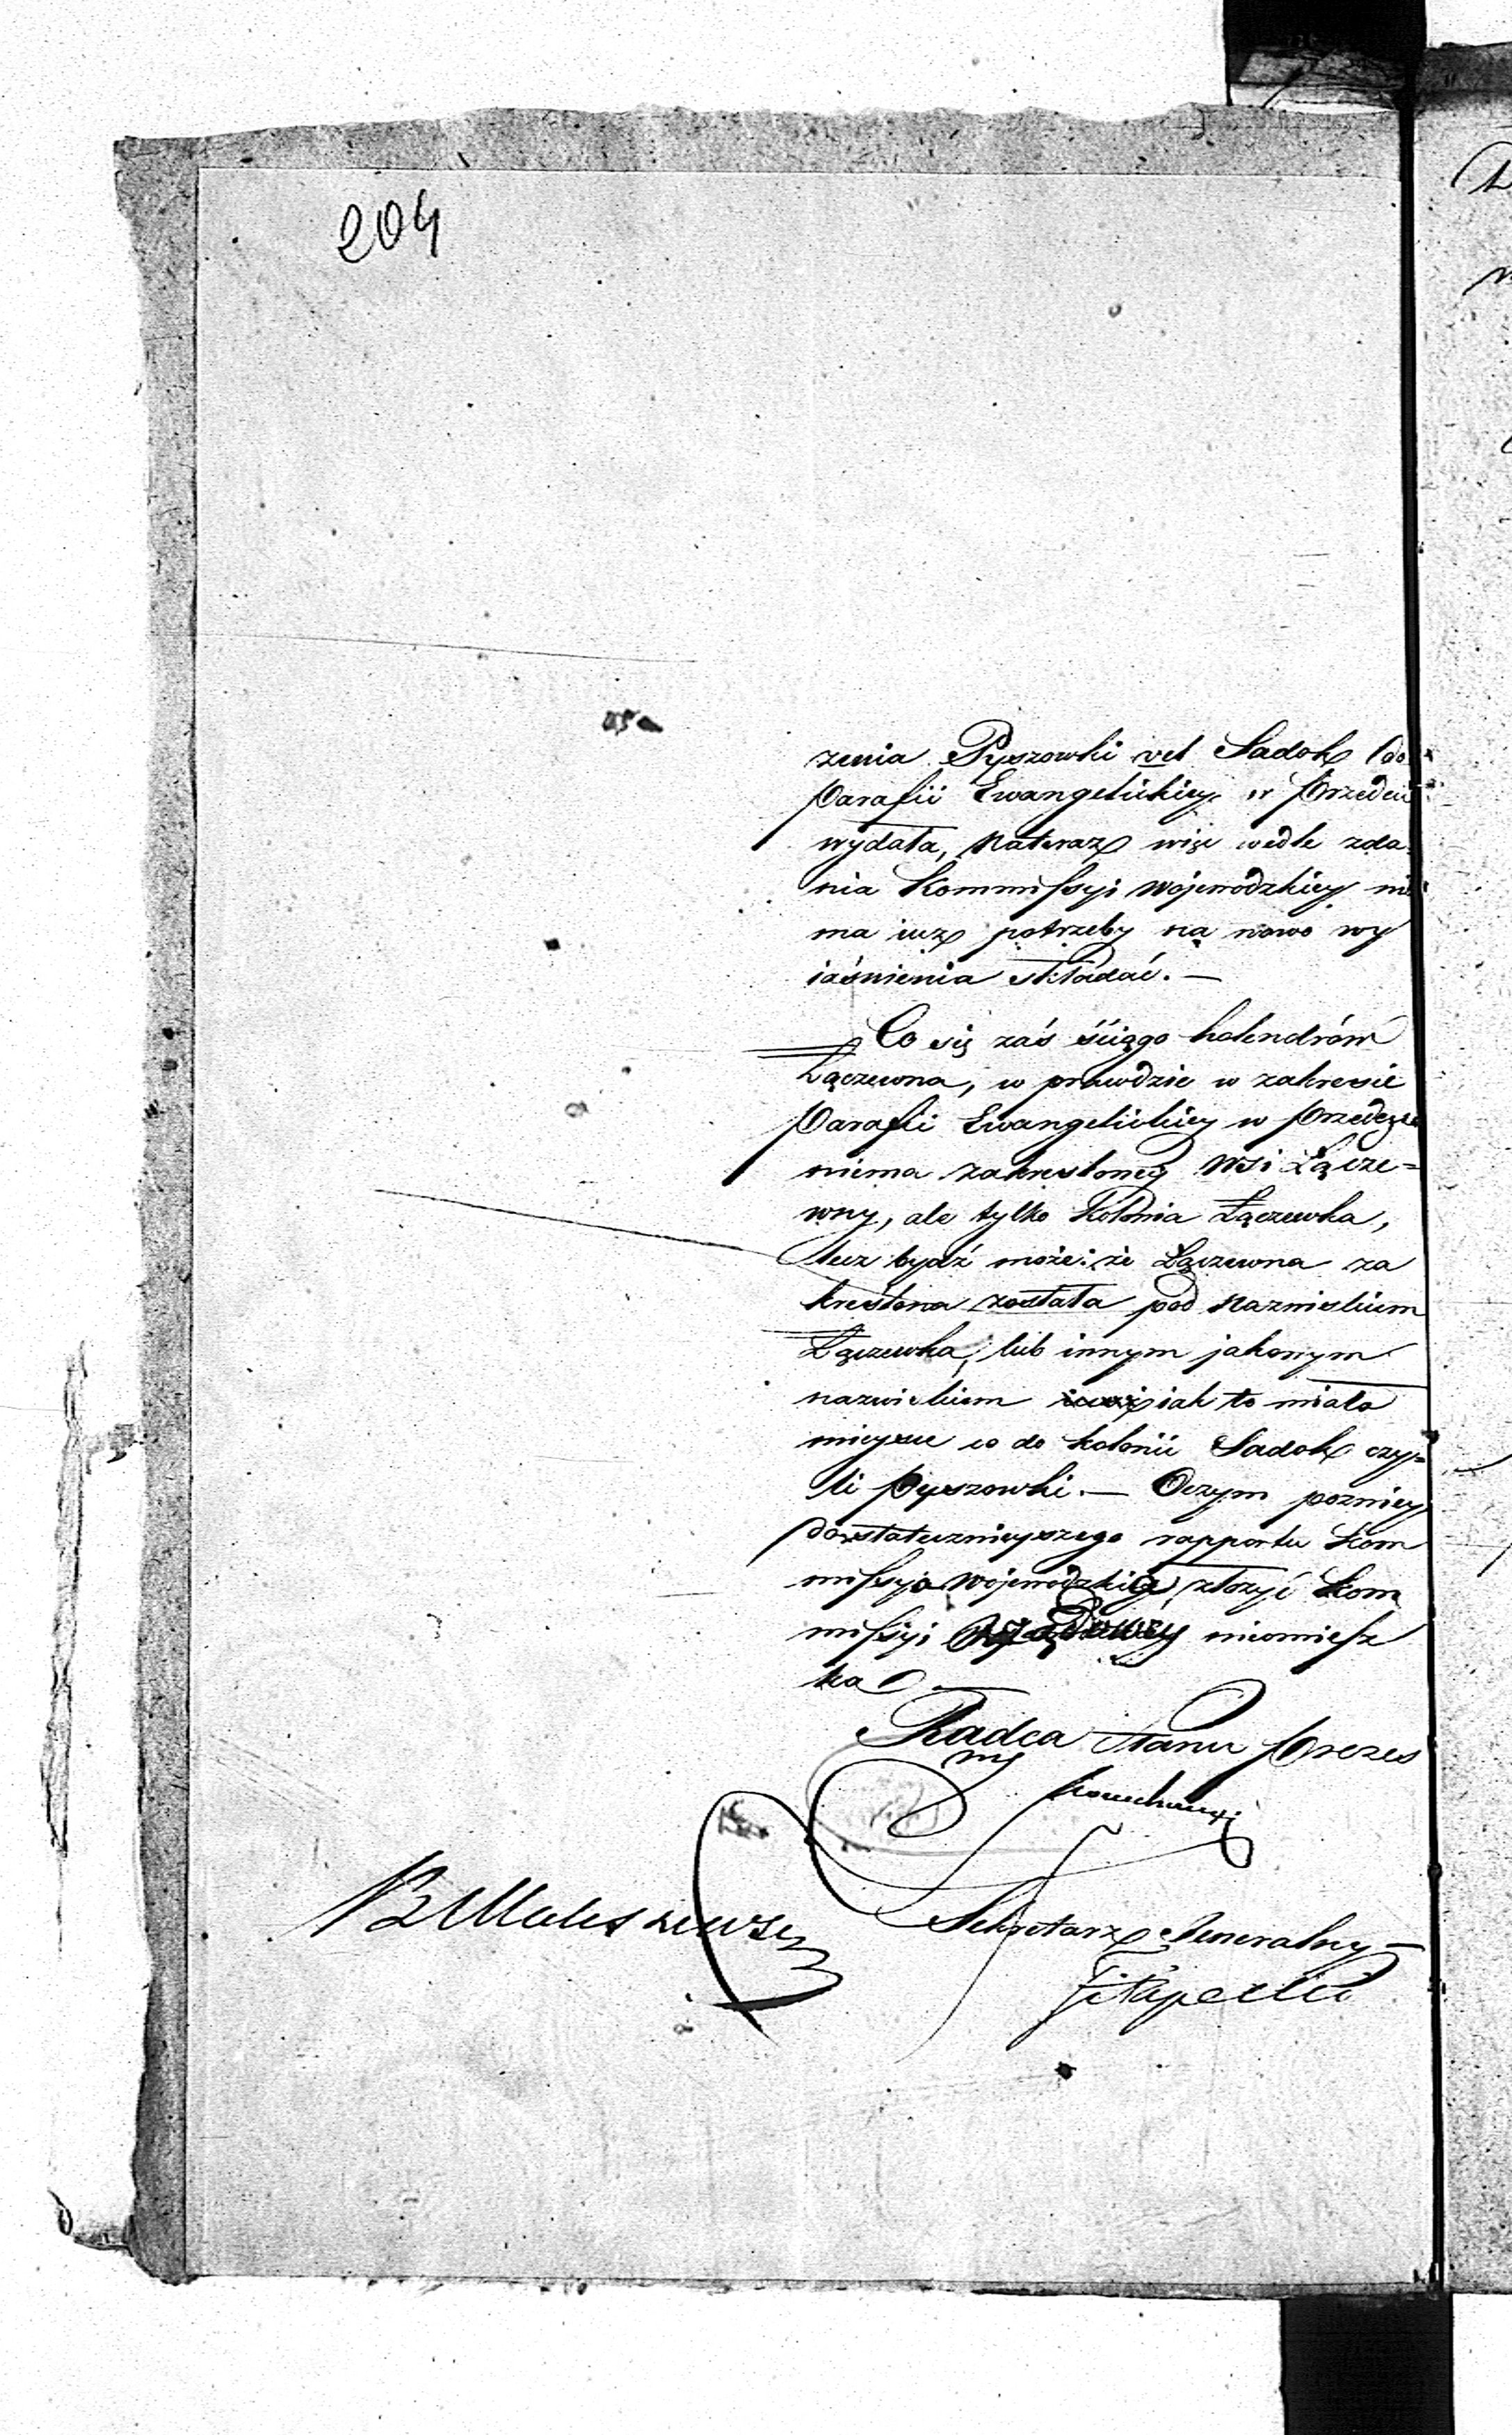 204
zenia Pyszowki vel Sadok do
Parafii Ewangelickiey w Przedeczu
wydała, nateraz więc wedle zda
nia Kommissyi Wojewodzkiey nie
ma iuż potrzeby na nowo wy
iaśnienia składać. —
Co się zaś ściąga holendrów
Łączewna, w prawdzie w zakresie
Parafii Ewangelickiey w Przedeczu
niema zakreśloney Wsi Łącze=
wny, ale tylko Kolonia Łączewka,
lecz bydź może: że Łączewna za
kreślona została pod Nazwiskiem
Łączewka, lub innym jakowym
nazwiskiem iak to miało
mieysce co do kolonii Sadok czy=
li Pyszowki. — Oczym pozniey
dostatecznieyszego rapportu Kom
missya Wojewodzka złożyć Kom
missyi Rządowéy nieomiesz
ka. —
Radca Stanu Prezes
Sekretarz Jeneralny —
Filipecki